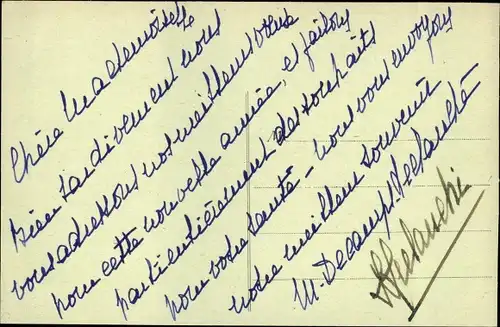 Chère Mademoiselle
Bien tardivement nous
vous adressons nos meilleurs voeux
pour cette nouvelle année, et faisons
particulièrement des souhaits
pour votre santé - nous vous envoyons
notre meilleur souvenir
M. Decamp-